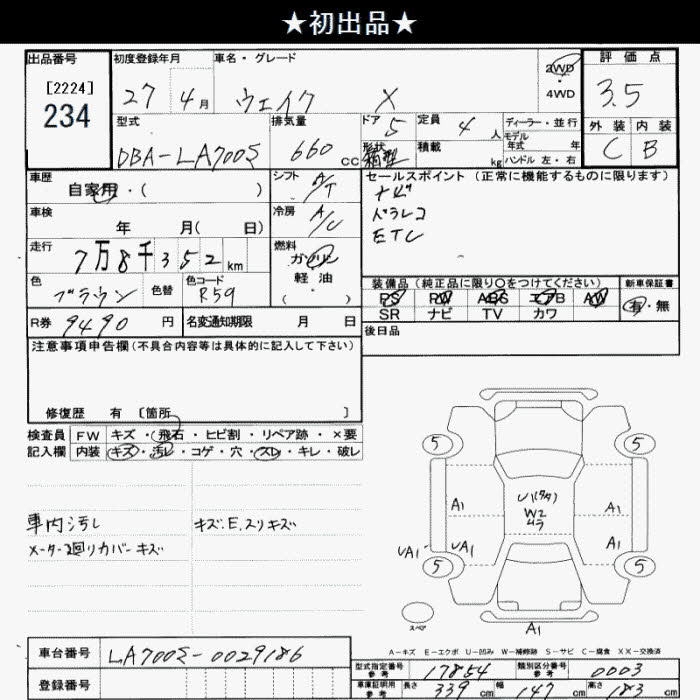 ★初出品★
出品番号
[2224]
234
初度登録年月
27 4月
車名・グレード
ウェイク X
2WD
・
4WD
評価点
3.5
型式
DBA-LA700S
排気量
660 cc
ドア 5
形状 箱型
定員 4 人
積載 kg
ディーラー・並行
モデル
年式 年
ハンドル 左・右
外装 内装
C B
車歴
自家用・( )
シフト A/T
車検
年 月( 日)
冷房 A/C
走行
7万8千352km
燃料
ガソリン
軽油
( )
色
ブラウン
色替
色コード
R59
R券 9490 円
名変通知期限 月 日
セールスポイント (正常に機能するものに限ります)
ナビ
ドラレコ
ETC
装備品(純正品に限り○をつけてください)
新車保証書
PS PW ABS エアB AW
有・無
SR ナビ TV カワ
後日品
注意事項申告欄(不具合内容等は具体的に記入して下さい)
修復歴 有 〔箇所 〕
検査員 FW キズ・飛石・ヒビ割・リペア跡・×要
記入欄 内装 キズ・汚レ・コゲ・穴・スレ・キレ・破レ
車内汚レ
キズ、E、スリキズ
メーター回りカバーキズ
5 5
W2
ムラ
A1 A1
UA1 UA1 A1
5 5
スペア
A1
A-キズ E-エクボ U-凹み W-補修跡 S-サビ C-腐食 XX-交換済
車台番号 LA700S-0029186
登録番号
型式指定番号
参考
17854
類別区分番号
参考
0003
車庫証明用
参考
長さ 339 cm 幅 147 cm 高さ 183 cm